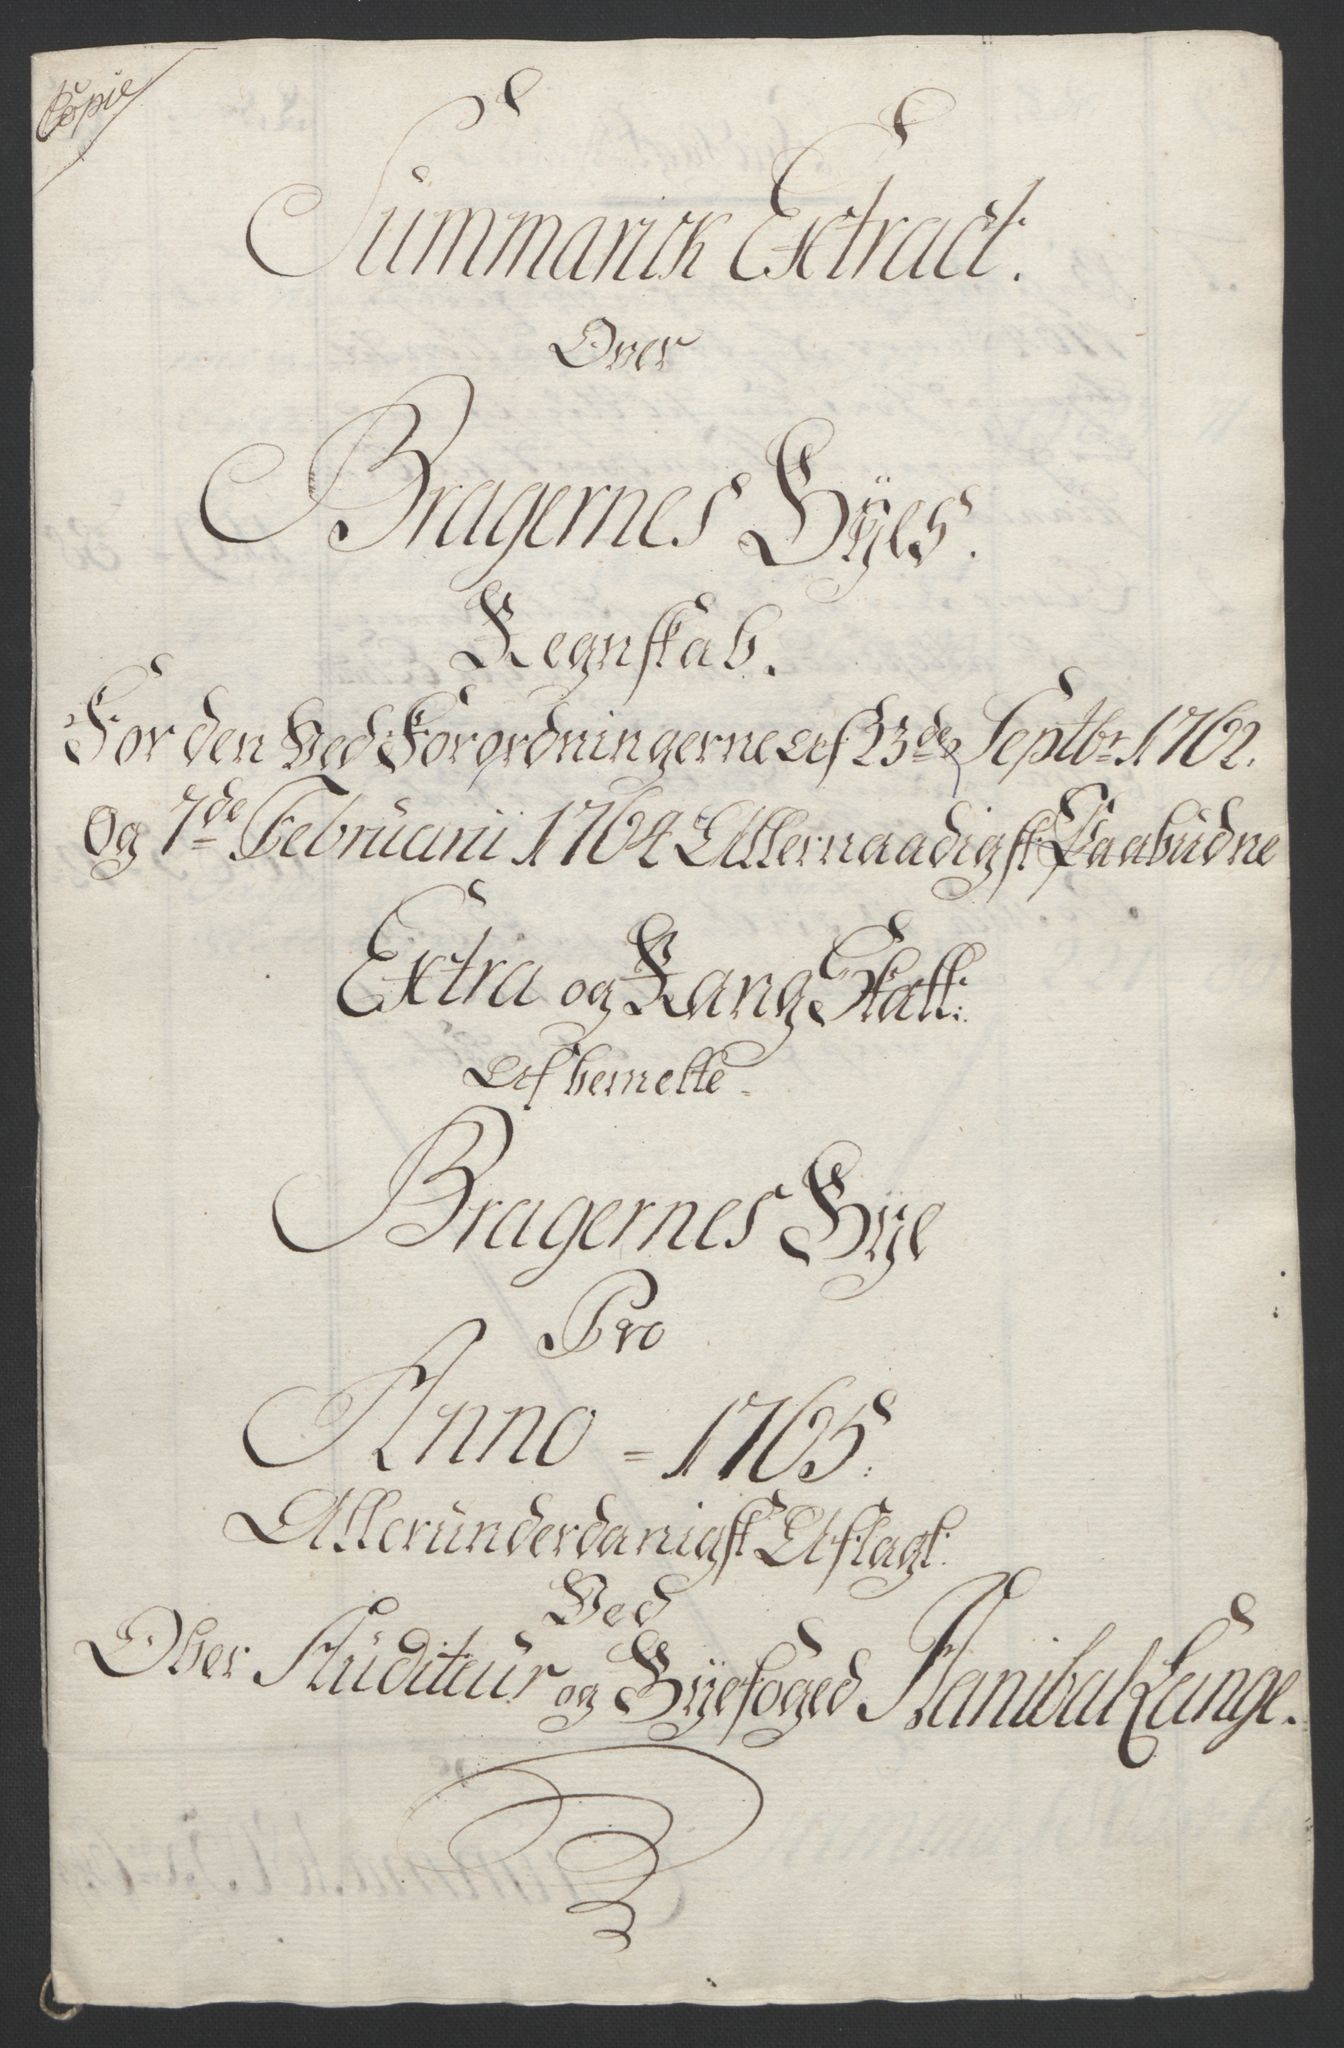 Copie
Summarisk Extract.
Over
Bragernes Byes.
Regnskab.
For den Ved Forordningerne af 23de Septbr 1762.
Og 7de Februarii 1764 Allernaadigst Paabudne
Extra og Rang Skatt:
Af bemelte
Bragernes Bye
Pro
Anno = 1765.
Allerunderdanigst Aflagt.
Ved
Ober Auditeur og Byefoged Hanibal Lange.